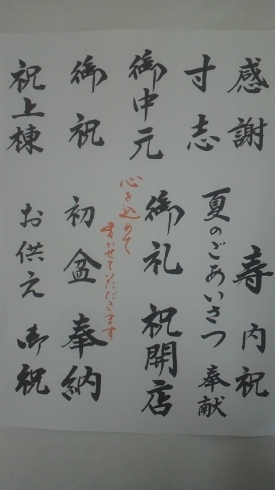 感謝
寿
内祝
寸志
夏のごあいさつ
奉献
御中元
御礼
祝開店
心を込めて
書かせていただきます
御祝
初盆
奉納
祝上棟
お供え
御祝